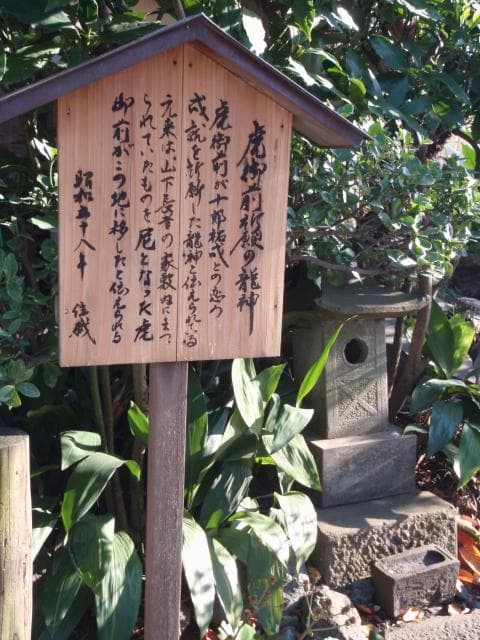 虎御前祈願の龍神
虎御前が十郎祐成との恋の
成就を祈願した龍神と伝えられる
元来は、山下長者の家敷内に立て
られていたものを尼となった虎
御前がこの地に移したと伝えられる
昭和五十八年 住職